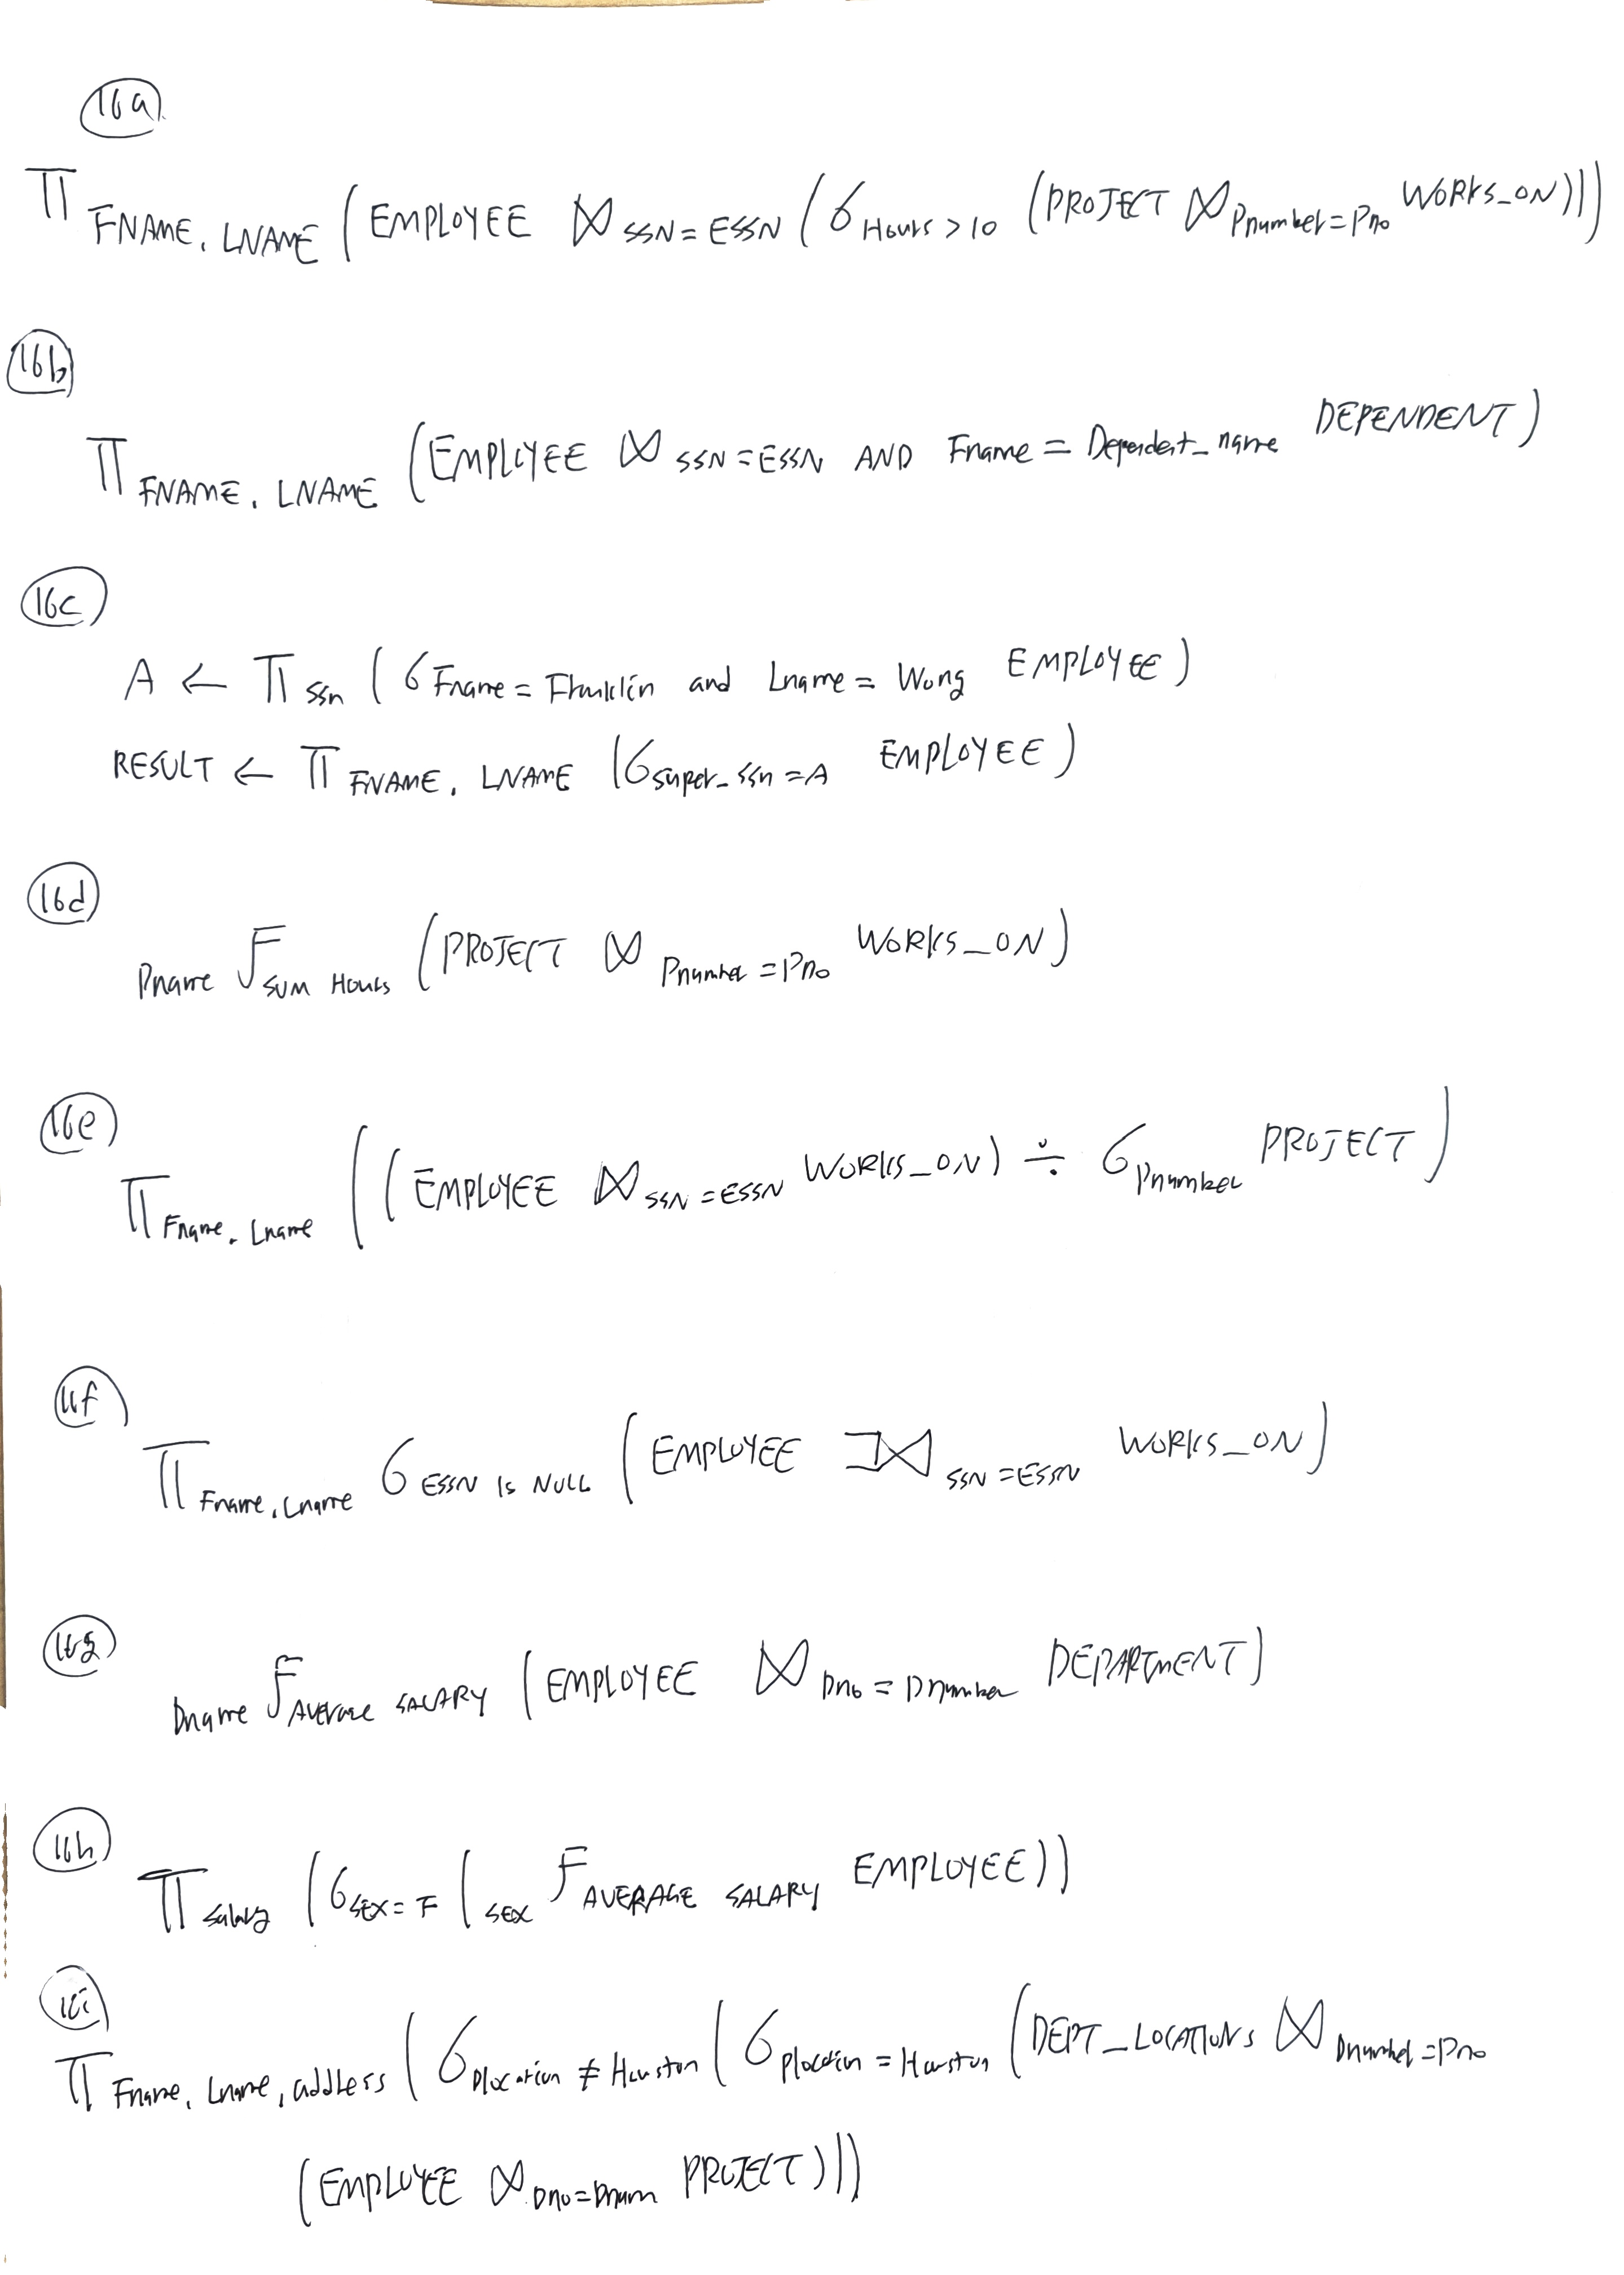 16a
π FNAME, LNAME (EMPLOYEE ⋈ SSN = ESSN (σ Hours > 10 (PROJECT ⋈ Pnumber = Pno WORKS_ON)))
16b
π FNAME, LNAME (EMPLOYEE ⋈ SSN = ESSN AND Fname = Dependent_name DEPENDENT)
16c
A ← π ssn (σ Fname = Franklin and Lname = Wong EMPLOYEE)
RESULT ← π FNAME, LNAME (σ super_ssn = A EMPLOYEE)
16d
Pname F SUM Hours (PROJECT ⋈ Pnumber = Pno WORKS_ON)
16e
π Fname, Lname ((EMPLOYEE ⋈ SSN = ESSN WORKS_ON) ÷ σ Pnumber PROJECT)
16f
π Fname, Lname σ ESSN IS NULL (EMPLOYEE ⟕ SSN = ESSN WORKS_ON)
16g
Dname F AVERAGE SALARY (EMPLOYEE ⋈ Dno = Dnumber DEPARTMENT)
16h
π Salary (σ SEX = F (SEX F AVERAGE SALARY EMPLOYEE))
16i
π Fname, Lname, address (σ Dlocation ≠ Houston (σ Plocation = Houston (DEPT_LOCATIONS ⋈ Dnumber = Dno
(EMPLOYEE ⋈ Dno = Dnum PROJECT)))